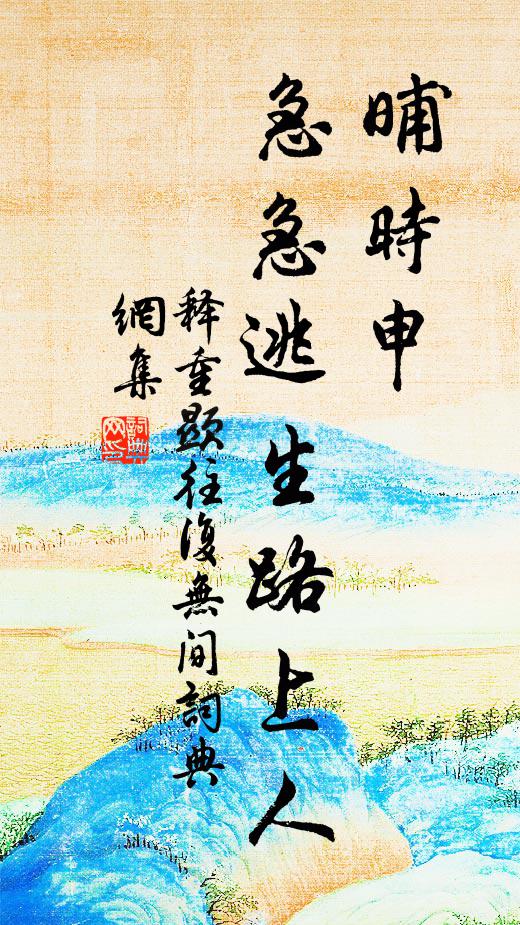 晡時申
急急逃生路上人
释重顯往復無间詞典
網集